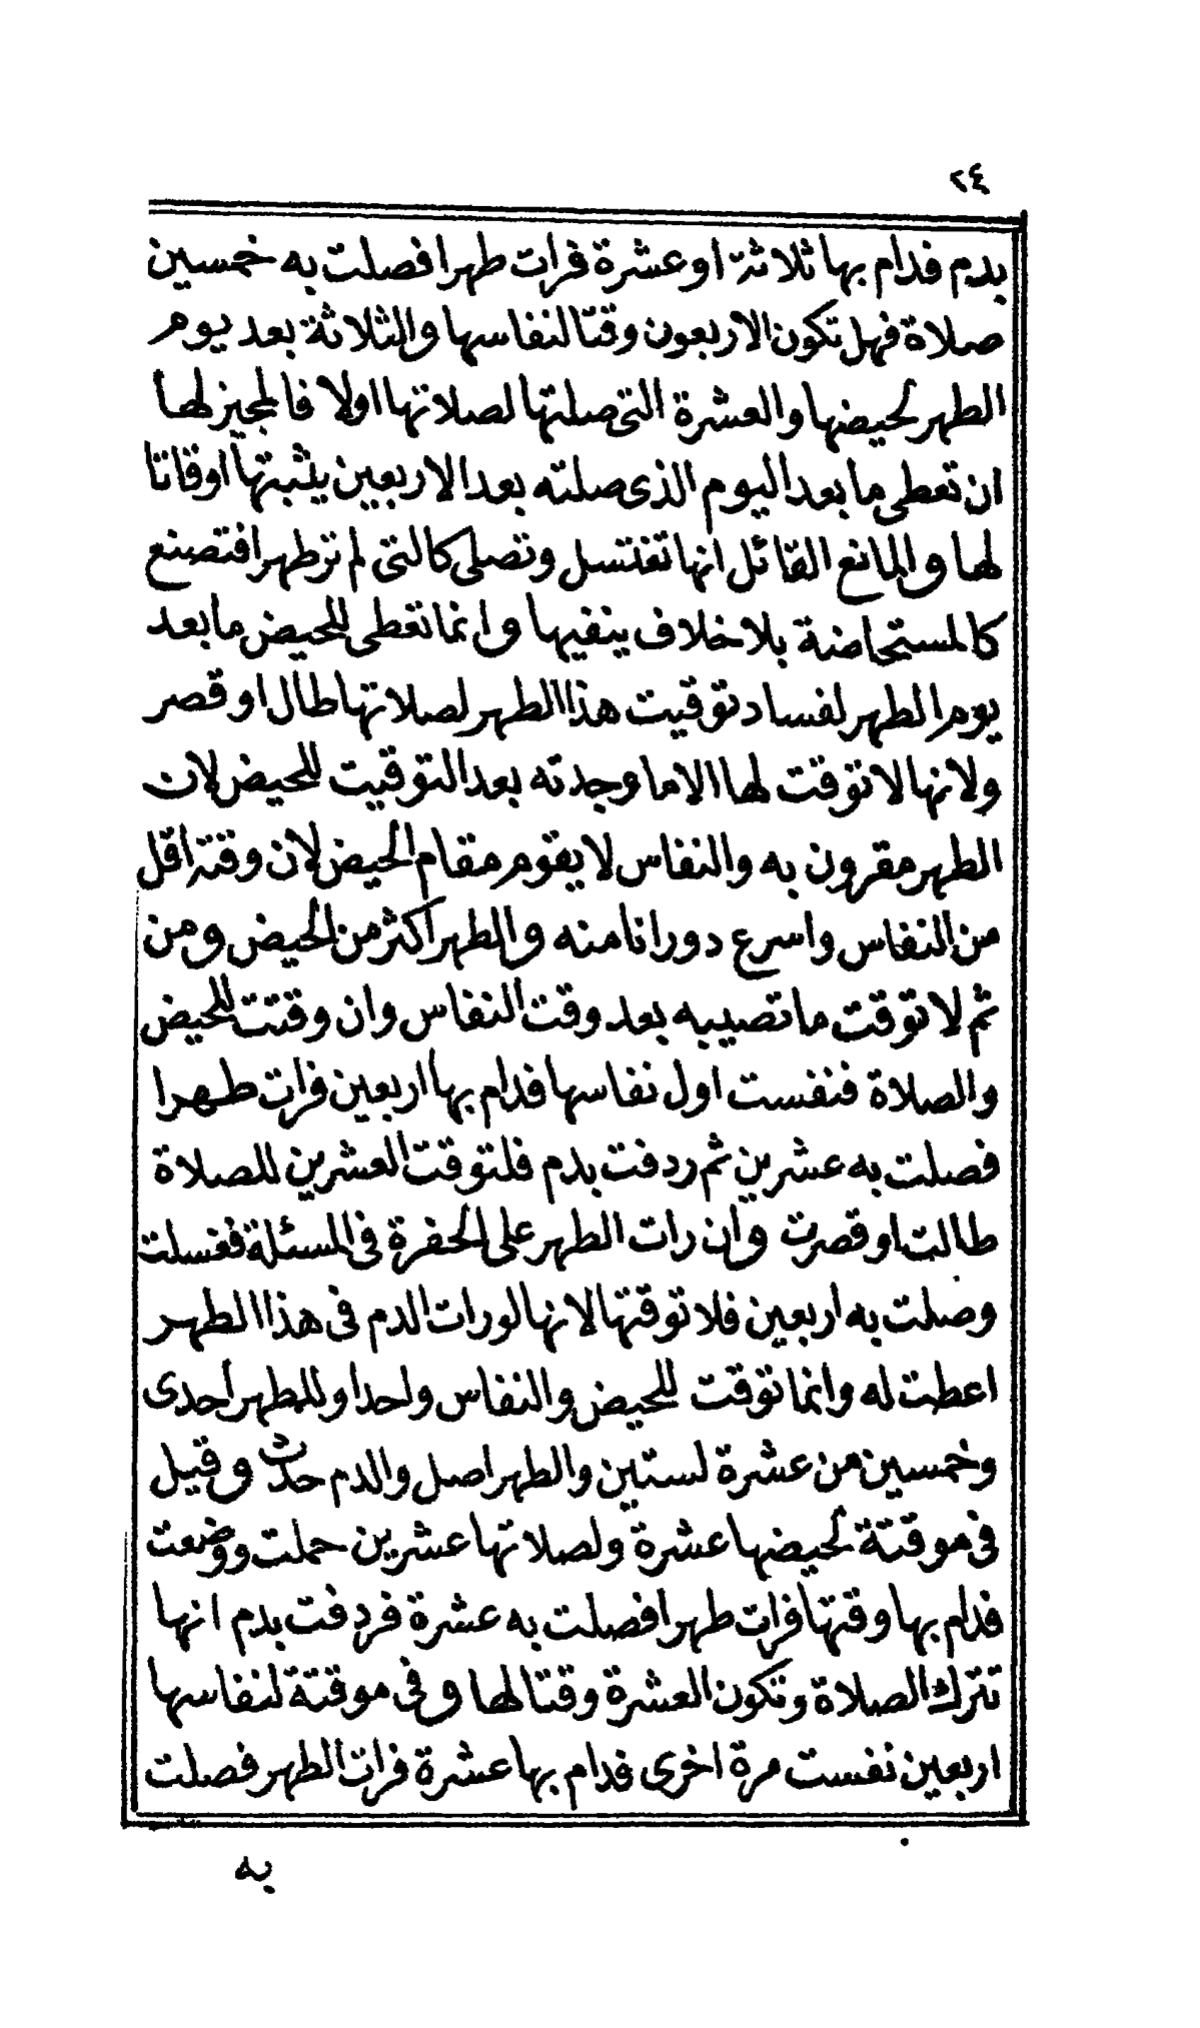 ٢٤
بدم فدام بها ثلاثة او عشرة فرات طهرا فصلت به خمسين
صلاة فهل تكون الاربعون وقتا لنفاسها والثلاثة بعد يوم
الطهر لحيضها والعشرة التى صلتها لصلاتها اولا فالمجيز لها
ان تعطى ما بعد اليوم الذى صلته بعد الاربعين يثبتها اوقاتا
لها والمانع القائل انها تغتسل وتصلى كالتى لم تر طهرا فتصنع
كالمستحاضة بلا خلاف ينفيها وانما تعطى للحيض ما بعد
يوم الطهر لفساد توقيت هذا الطهر لصلاتها طال او قصر
ولانها لا توقت لها الا ما وجدته بعد التوقيت للحيض لان
الطهر مقرون به والنفاس لا يقوم مقام الحيض لان وقته اقل
من النفاس واسرع دورانا منه والطهر اكثر من الحيض ومن
ثم لا توقت ما تصيبه بعد وقت النفاس وان وقتت للحيض
والصلاة فنفست اول نفاسها فدام بها اربعين فرات طهرا
فصلت به عشرين ثم ردفت بدم فلتوقت العشرين للصلاة
طالت او قصرت وان رات الطهر على الحفرة فى المسئلة فغسلت
وصلت به اربعين فلا توقتها لانها لو رات الدم فى هذا الطهر
اعطت له وانما توقت للحيض والنفاس واحدا وللطهر احدى
وخمسين من عشرة لستين والطهر اصل والدم حدث وقيل
فى موقتة لحيضها عشرة ولصلاتها عشرين حملت ووضعت
فدام بها وقتها فرات طهرا فصلت به عشرة فردفت بدم انها
تترك الصلاة وتكون العشرة وقتا لها وفى موقتة لنفاسها
اربعين نفست مرة اخرى فدام بها عشرة فرات الطهر فصلت
به